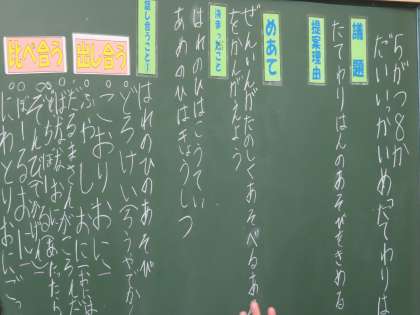 5がつ8か
だいいっかいめ たてわりは
議題
たてわりはんのあそびをきめる
提案理由
めあて
ぜんいんがたのしくあそべるあ
をかんがえよう
決まったこと
はれのひはこうてい
あめのひはきょうしつ
話し合うこと1
はれのひのあそび
どろけい
こおりおに
ふやしおに
だるまさんがころんだ
ばなな おに
ぞんび
ぼーるおに
にわとりおにご
出し合う
比べ合う